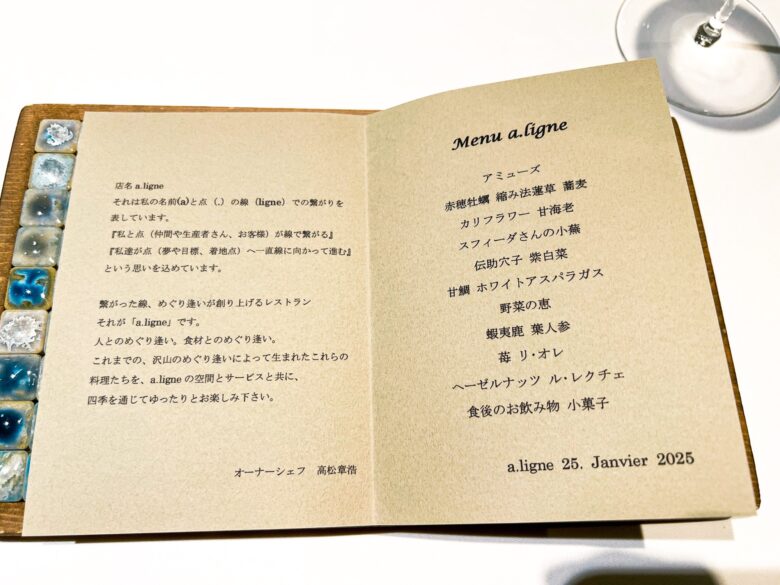 店名 a.ligne
それは私の名前(a)と点（.）の線（ligne）での繋がりを
表しています。
『私と点（仲間や生産者さん、お客様）が線で繋がる』
『私達が点（夢や目標、着地点）へ一直線に向かって進む』
という思いを込めています。
繋がった線、めぐり逢いが創り上げるレストラン
それが「a.ligne」です。
人とのめぐり逢い。食材とのめぐり逢い。
これまでの、沢山のめぐり逢いによって生まれたこれらの
料理たちを、a.ligne の空間とサービスと共に、
四季を通じてゆったりとお楽しみ下さい。
オーナーシェフ 高松章浩
Menu a.ligne
アミューズ
赤穂牡蠣 縮み法蓮草 蕎麦
カリフラワー 甘海老
スフィーダさんの小蕪
伝助穴子 紫白菜
甘鯛 ホワイトアスパラガス
野菜の恵
蝦夷鹿 葉人参
苺 リ・オレ
ヘーゼルナッツ ル・レクチェ
食後のお飲み物 小菓子
a.ligne 25. Janvier 2025